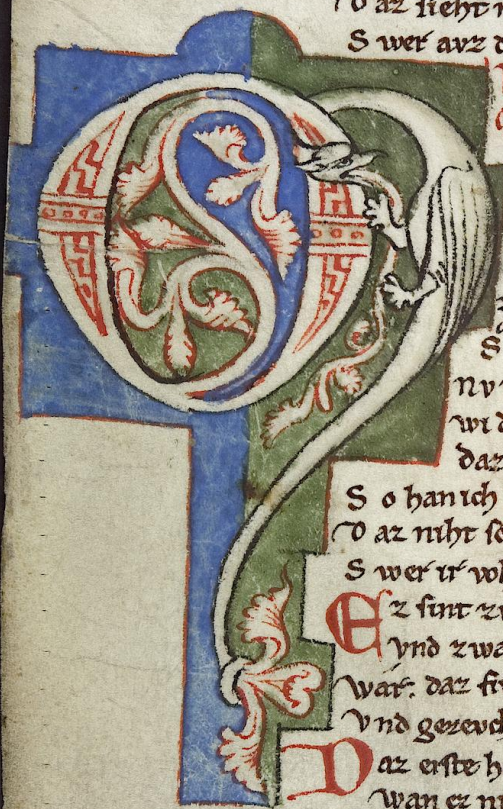 D az sieht
S wer avz d
S
nv
wi d
daz
S o han ich
D az niht so
S wer ir wol
Ez sint zw
vnd zwa
war. daz fi
v nd gezevch
Daz erste h
wan er m